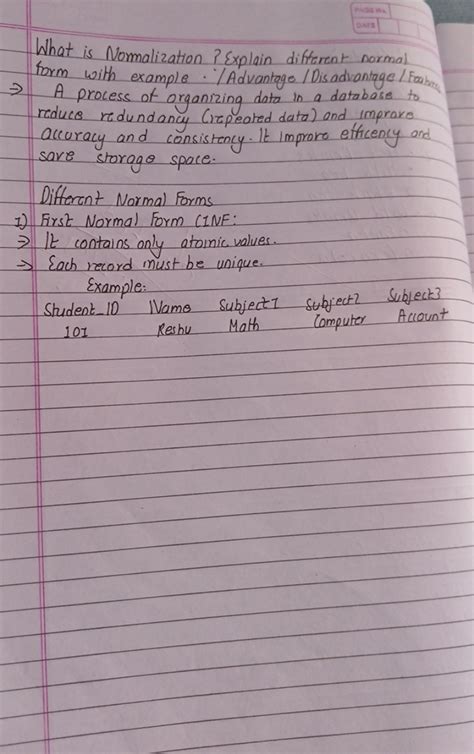 PAGE No.
DATE
What is Normalization ? Explain different normal
form with example . / Advantage / Disadvantage / Features
⇒ A process of organizing data in a database to
reduce redundancy (repeated data) and improve
accuracy and consistency. It improve efficency and
save storage space.
Different Normal Forms
1) First Normal Form (1NF:
⇒ It contains only atomic values.
⇒ Each record must be unique.
Example:
Student_ID Name Subject1 Subject2 Subject3
101 Reshu Math Computer Account